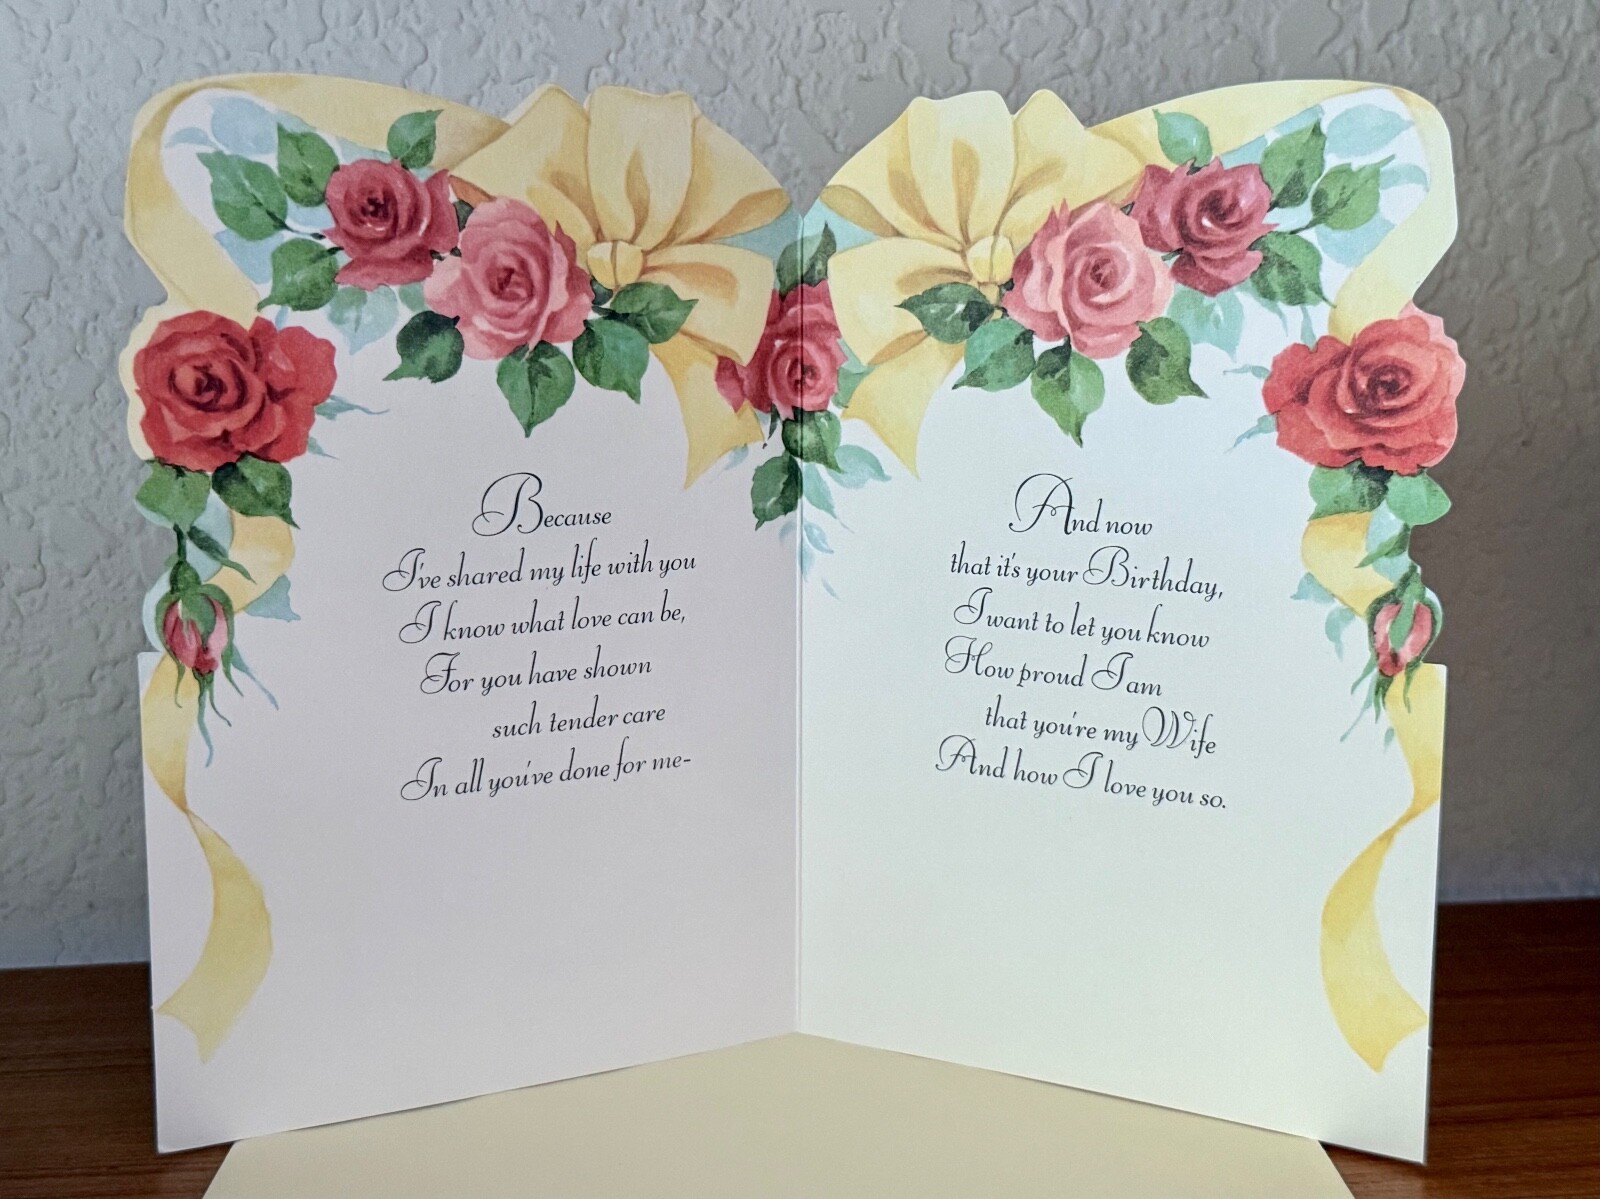 Because
I've shared my life with you
I know what love can be,
For you have shown
such tender care
In all you've done for me-
And now
that it's your Birthday,
I want to let you know
How proud I am
that you're my Wife
And how I love you so.